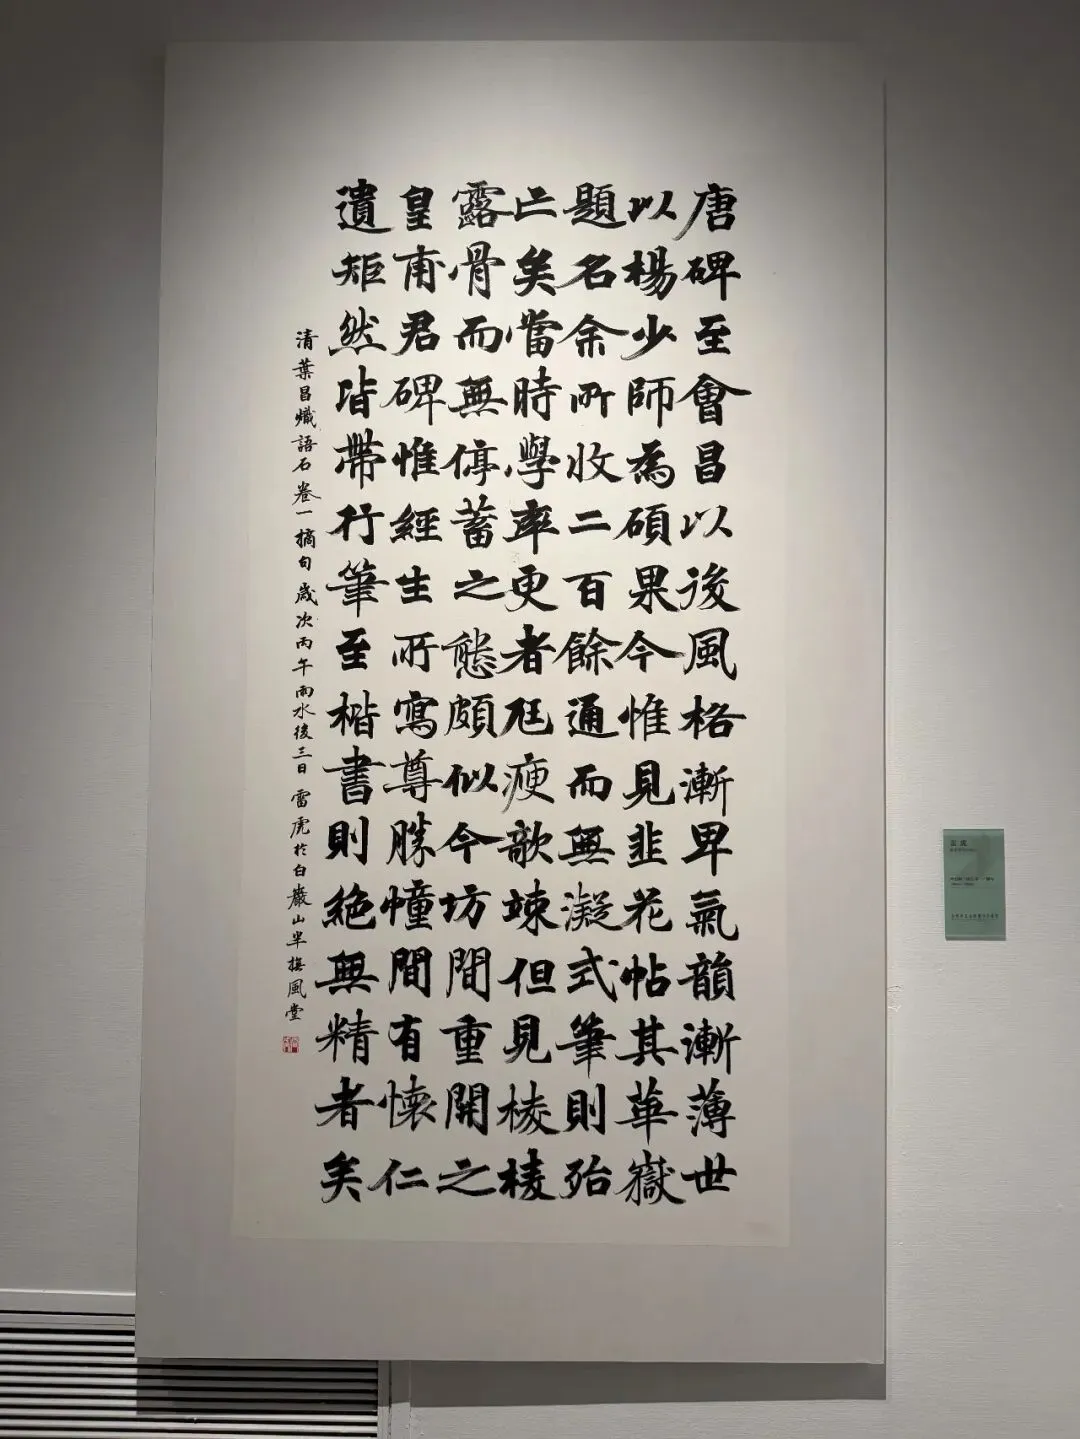 唐碑至會昌以後風格漸卑氣韻漸薄世
以楊少師為碩果今惟見韭花帖其華嶽
題名余所收二百餘通而無凝式筆則殆
亡矣當時學率更者尪瘦歌竦但見棱棱
露骨而無停蓄之態頗似今坊間重開之
皇甫君碑惟經生所寫尊勝幢間有懷仁
遺矩然皆帶行筆至楷書則絕無精者矣
清葉昌熾語石卷一摘句歲次丙午雨水後三日雷虎於白巖山半撫風堂